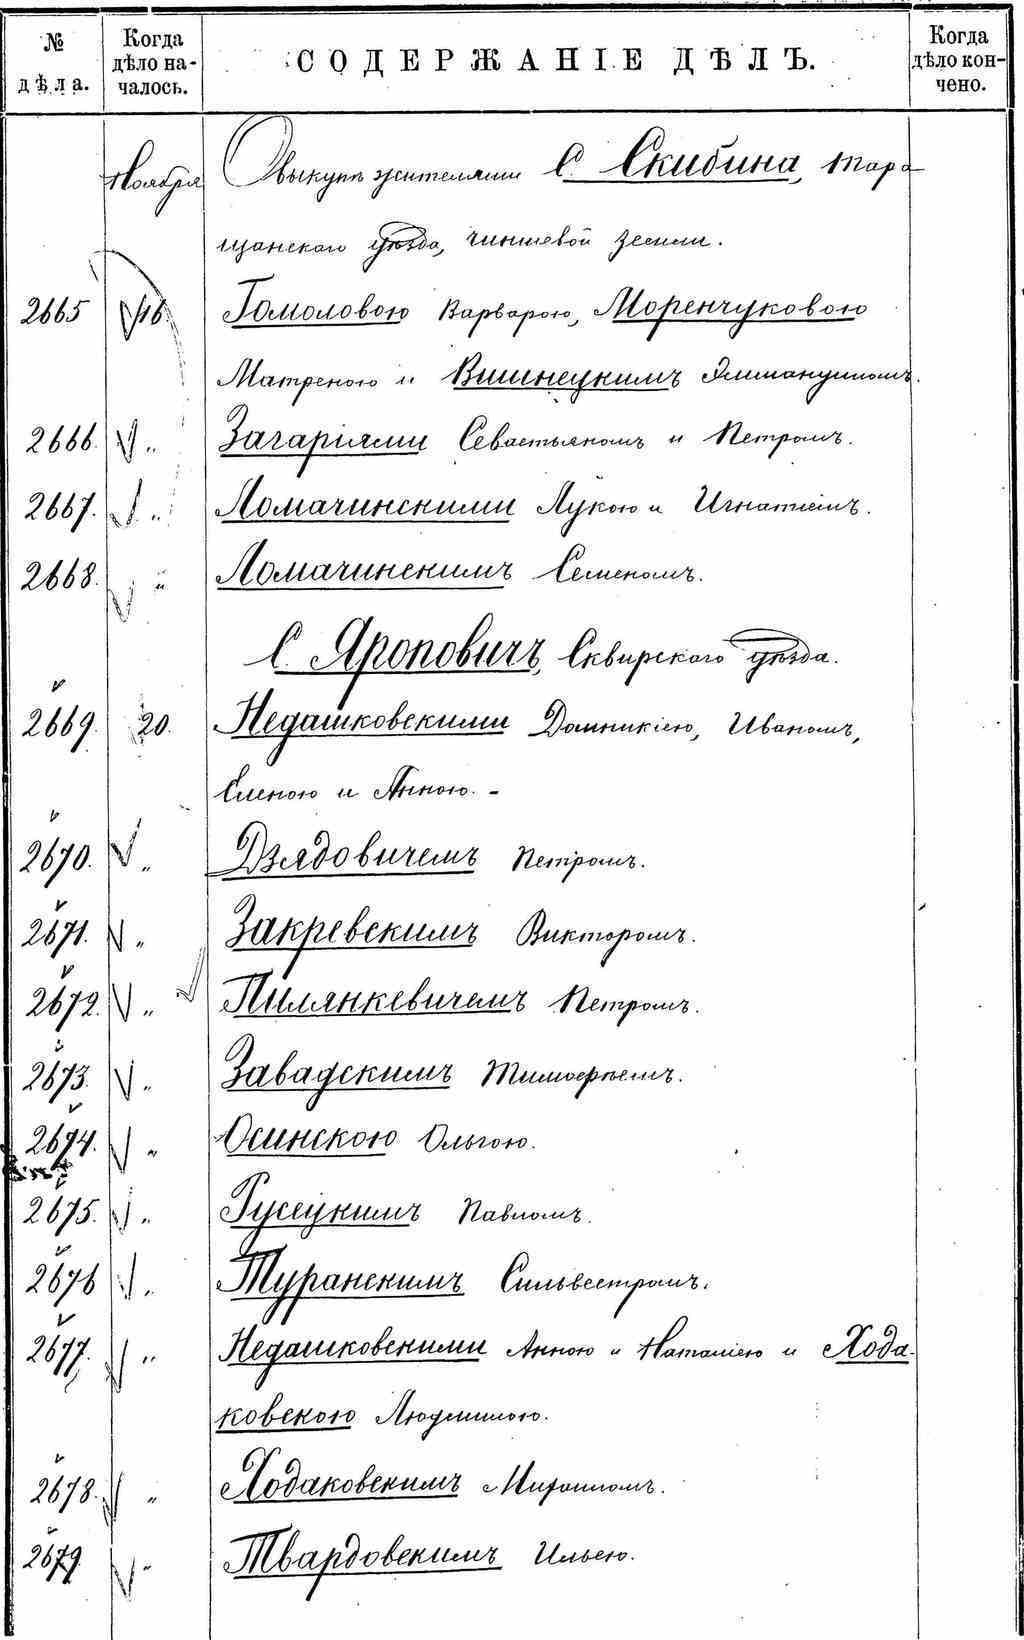 № дѣла. Когда дѣло началось. СОДЕРЖАНІЕ ДѢЛЪ. Когда дѣло кончено.
Ноября О выкупѣ жителями С. Скибина, Тара-
щанскаго уѣзда, чиншевой земли.
2665 16. Гомоловою Варварою, Моренчуковою
Матреною и Вишнецкимъ Эммануиломъ.
2666. „ Загаріями Севастьяномъ и Петромъ.
2667. „ Ломачинскими Лукою и Игнатіемъ.
2668. „ Ломачинскимъ Семеномъ.
С. Яроповичъ, Сквирскаго уѣзда.
2669. 20. Недашковскими Домникіею, Иваномъ,
Еленою и Анною. -
2670. „ Дзядовичемъ Петромъ.
2671. „ Закревскимъ Викторомъ.
2672. „ Пилянкевичемъ Петромъ.
2673. „ Завадскимъ Тимофѣемъ.
2674. „ Осинскою Ольгою.
2675. „ Русецкимъ Павломъ.
2676 „ Туранскимъ Сильвестромъ.
2677. „ Недашковскими Анною и Наталіею и Хода-
ковскою Людмилою.
2678. „ Ходаковскимъ Михаиломъ.
2679. „ Твардовскимъ Ильею.